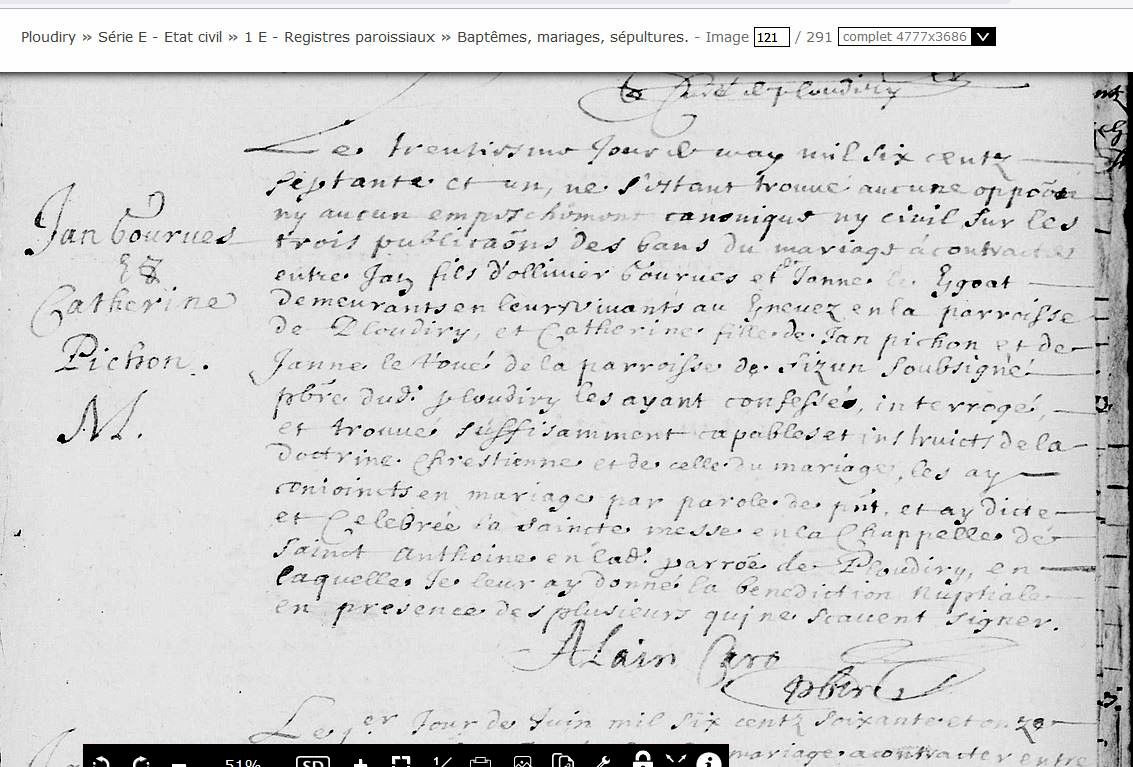 Ploudiry » Série E - Etat civil » 1 E - Registres paroissiaux » Baptêmes, mariages, sépultures. - Image 121 / 291 complet 4777x3686
de ploudiry
Le trentissme Jour de may mil six centz
septante et un, ne s'estant trouvé aucune oppoõn
ny aucun empeschément canonique ny civil sur les
trois publicaõns des bans du mariage a contracter
entre Jan fils d'ollivier Gourves et de Janne le Ggoat
demeurants en leurs vivants au en la parroisse
de Ploudiry, et Catherine fille de Jan pichon et de
Janne le de la parroisse de Sizun soubsigné
pbre dud: ploudiry les ayant confessés, interrogé,
et trouvé suffisamment capables et instruicts de la
doctrine Chrestienne et de celle du mariage, les ay
conioincts en mariage par parole de pñt, et ay dicte
et Celebrée la saincte messe en la Chappelle de
Sainct Anthoine en lad: parroe de Ploudiry, en
laquelle Je leur ay donné la benediction Nuptiale
en presence des plusieurs qui ne scavent signer.
Alain pbre
Jan Gourves
&
Catherine
Pichon.
M.
Le per Jour de Juin mil six centz soixante et onze
mariage a contracter entre
51%
SD